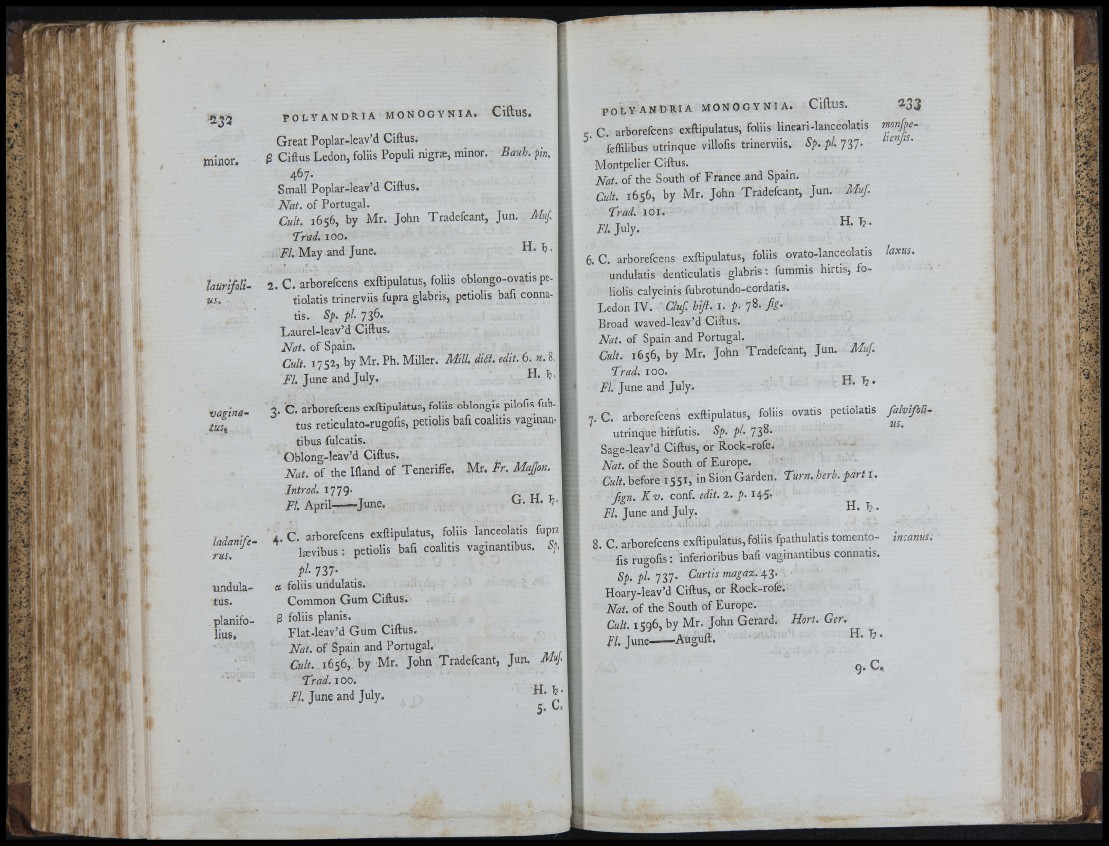 232 POLYANDRIA MONOGYNIA. Ciſtus.
Great Poplar-leav'd Ciſtus.
minor. β Ciſtus Ledon, foliis Populi nigræ, minor. Bauh. pin.
467.
Small Poplar-leav'd Ciſtus.
Nat. of Portugal.
Cult. 1656, by Mr. John Tradeſcant, Jun. Muſ.
Trad. 100.
Fl. May and June. H. ♄.
laurifoli- 2. C. arboreſcens exſtipulatus, foliis oblongo-ovatis pe-
us. tiolatis trinerviis ſupra glabris, petiolis baſi conna-
tis. Sp. pl. 736.
Laurel-leav'd Ciſtus.
Nat. of Spain.
Cult. 1752, by Mr. Ph. Miller. Mill. dict. edit. 6. n. 8.
Fl. June and July. H. ♄.
vagina- 3. C. arboreſcens exſtipulatus, foliis oblongis piloſis ſub-
tus. tus reticulato-rugoſis, petiolis baſi coalitis vaginan-
tibus ſulcatis.
Oblong-leav'd Ciſtus.
Nat. of the Iſland of Teneriffe. Mr. Fr. Maſſon.
Introd. 1779.
Fl. April——June. G. H. ♄.
ladanife- 4. C. arboreſcens exſtipulatus, foliis lanceolatis ſupra
rus. lævibus : petiolis baſi coalitis vaginantibus. Sp.
pl. 737.
undula- α foliis undulatis.
tus. Common Gum Ciſtus.
planifo- β foliis planis.
lius. Flat-leav'd Gum Ciſtus.
Nat. of Spain and Portugal.
Cult. 1656, by Mr. John Tradeſcant, Jun. Muſ.
Trad. 100.
Fl. June and July. H. ♄.
5. C.
POLYANDRIA MONOGYNIA. Ciſtus. 233
5. C. arboreſcens exſtipulatus, foliis lineari-lanceolatis monſpe-
ſeſſilibus utrinque villoſis trinerviis. Sp. pl. 737. lienſis.
Montpelier Ciſtus.
Nat. of the South of France and Spain.
Cult. 1656, by Mr. John Tradeſcant, Jun. Muſ.
Trad. 101.
Fl. July. H. ♄.
6. C. arboreſcens exſtipulatus, foliis ovato-lanceolatis laxus.
undulatis denticulatis glabris : ſummis hirtis, fo-
liolis calycinis ſubrotundo-cordatis.
Ledon IV. Cluſ. hiſt. 1. p. 78. fig.
Broad waved-leav'd Ciſtus.
Nat. of Spain and Portugal.
Cult. 1656, by Mr. John Tradeſcant, Jun. Muſ.
Trad. 100.
Fl. June and July. H. ♄.
7. C. arboreſcens exſtipulatus, foliis ovatis petiolatis ſalvifoli-
utrinque hirſutis. Sp. pl. 738. us.
Sage-leav'd Ciſtus, or Rock-roſe.
Nat. of the South of Europe.
Cult. before 1551, in Sion Garden. Turn. herb. part 1.
ſign. K v. conf. edit. 2. p. 145.
Fl. June and July. H. ♄.
8. C. arboreſcens exſtipulatus, foliis ſpathulatis tomento- incanus.
ſis rugoſis : inferioribus baſi vaginantibus connatis.
Sp. pl. 737. Curtis magaz. 43.
Hoary-leav'd Ciſtus, or Rock-roſe.
Nat. of the South of Europe.
Cult. 1596, by Mr. John Gerard. Hort. Ger.
Fl. June——Auguſt. H. ♄.
9. C.